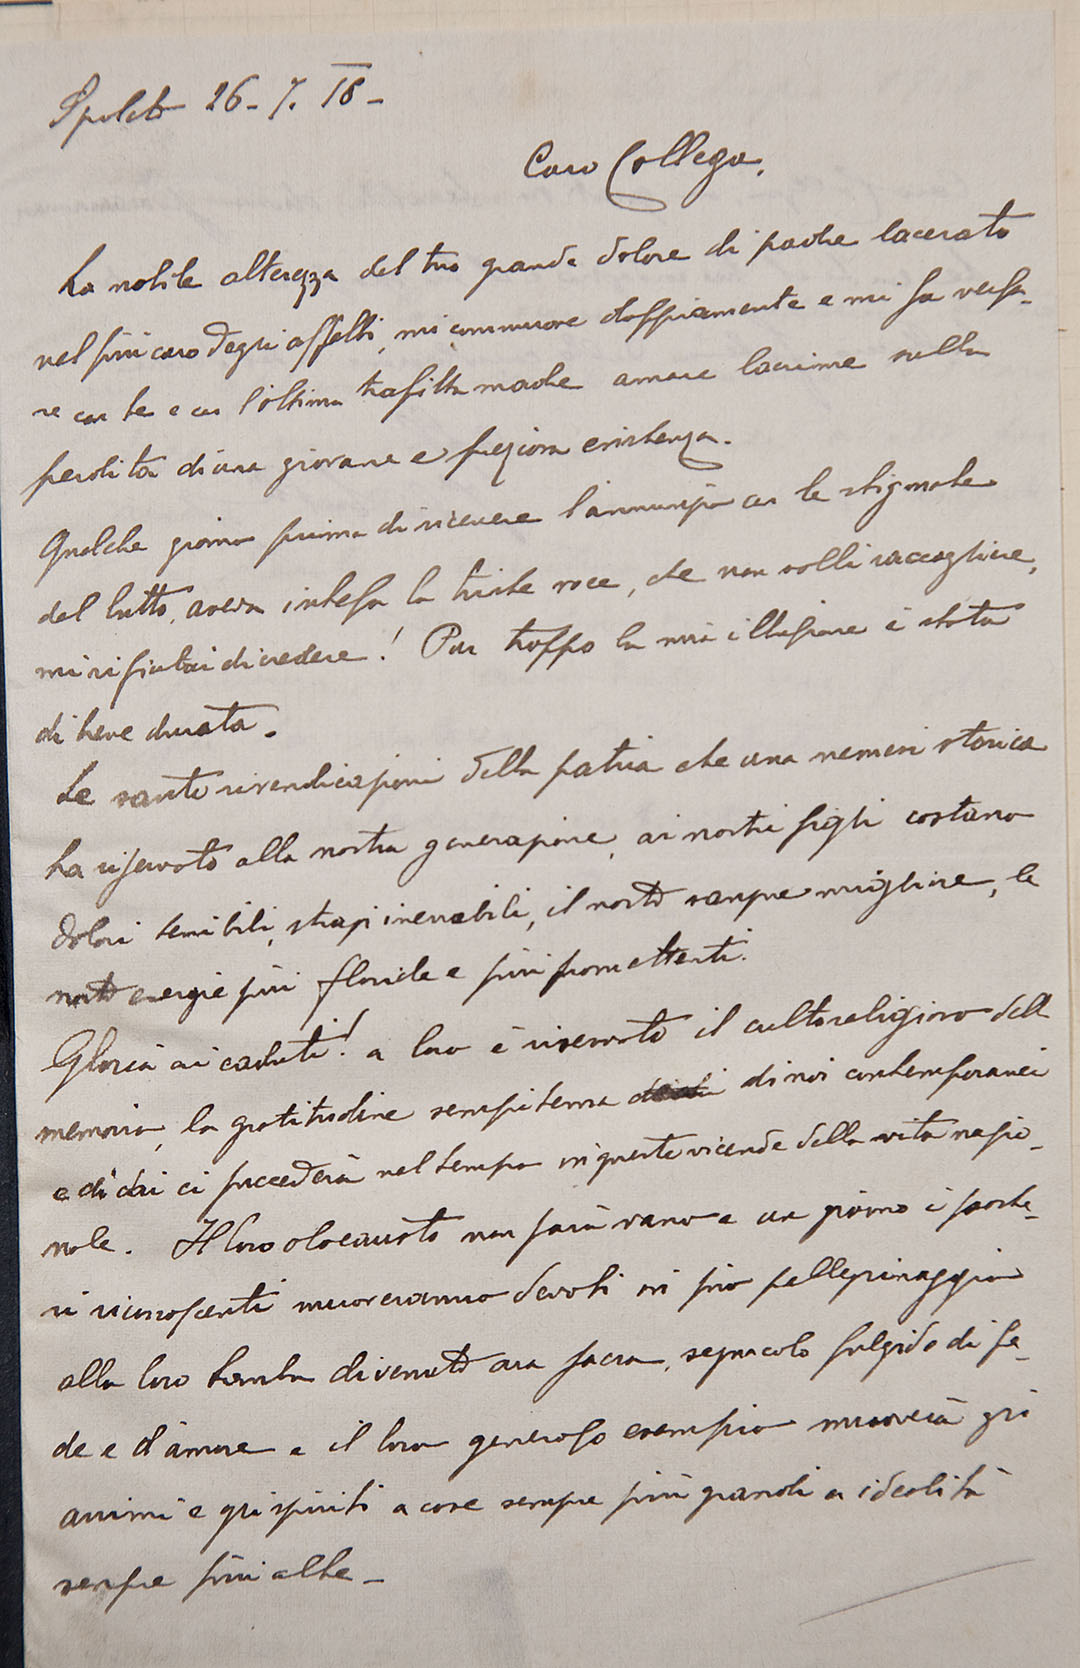 Spoleto 26-7.18-
Caro Collega,
La nobile alterezza del tuo grande dolore di padre lacerato
nel più caro degli affetti, mi commuove doppiamente e mi fa versa-
re con te e con l'ottima trafitta madre amare lacrime sulla
perdita di una giovane e preziosa existenza.
Qualche giorno prima di ricevere l'annunzio con le stigmate
del lutto, aveva intesa la triste voce, che non volli raccogliere,
mi rifiutai di credere! Pur troppo la mia illusione è stata
di breve durata.
Le sante rivendicazioni della patria che una nemesi storica
ha riservato alla nostra generazione, ai nostri figli costano
dolori terribili, strazi inenarrabili, il nostro sangue migliore, le
nostre energie più floride e più promettenti.
Gloria ai caduti! a loro è riservato il culto religioso della
memoria, la gratitudine sempiterna di noi contemporanei
e di chi ci succederà nel tempo in queste vicende della vita nazio-
nale. Il loro olocausto non sarà vano e un giorno i poste-
ri riconoscenti muoveranno devoti in pio pellegrinaggio
alla loro tomba divenuta ara sacra, segnacolo fulgido di fe-
de e d'amore e il loro generoso esempio muoverà gli
animi e gli spiriti a cose sempre più grandi a idealità
sempre più alte-